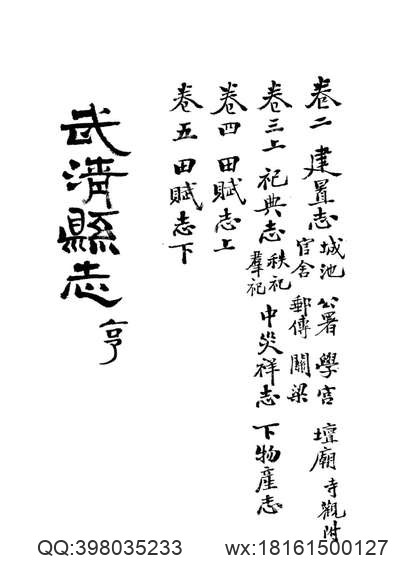 卷二 建置志 城池 公署 學宮 壇廟 寺觀附
官舍 郵傳 關梁
卷三上 祀典志 秩祀
羣祀
中災祥志 下物産志
卷四 田賦志上
卷五 田賦志下
武清縣志 亨
QQ:398035233 wx:18161500127